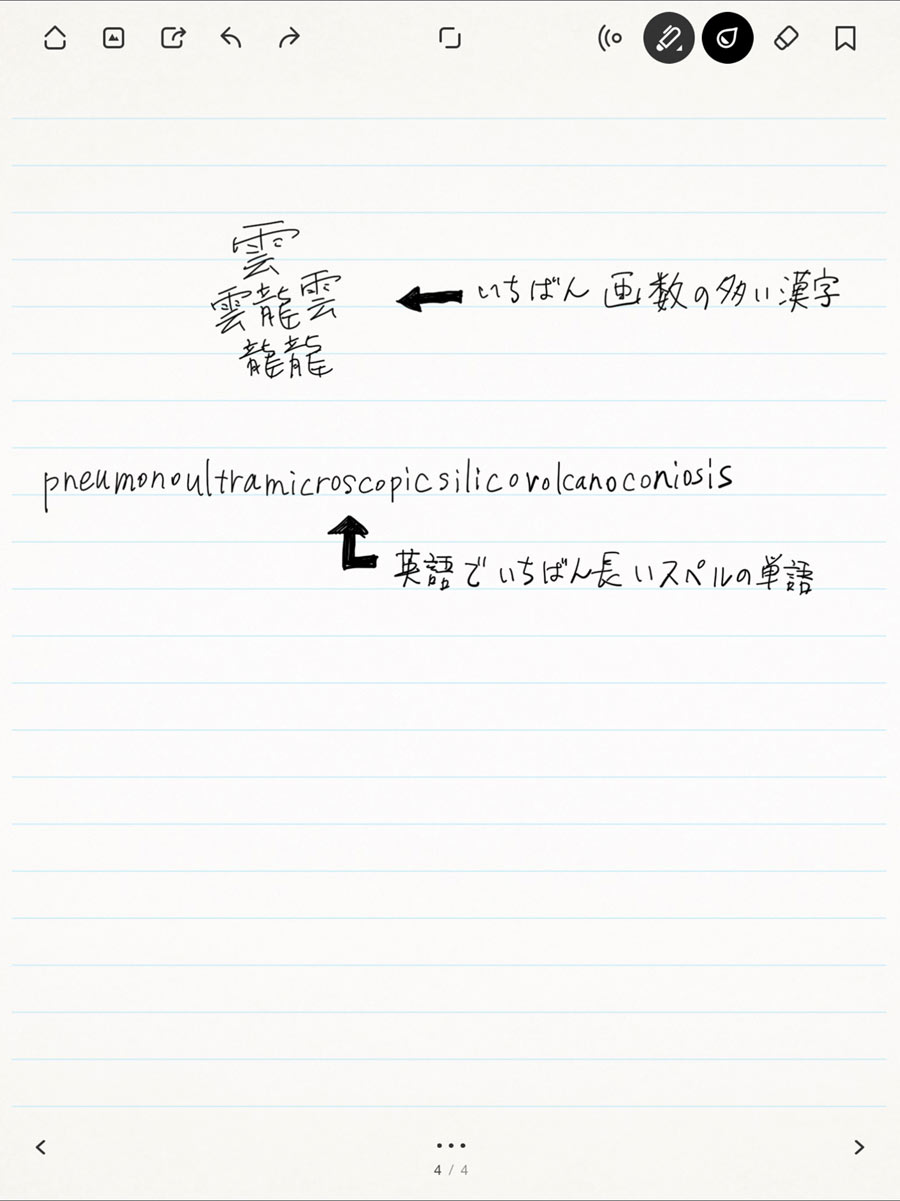 雲
雲龍雲
龍龍
いちばん 画数の多い漢字
pneumonoultramicroscopicsilicovolcanoconiosis
英語でいちばん長いスペルの単語
4 / 4